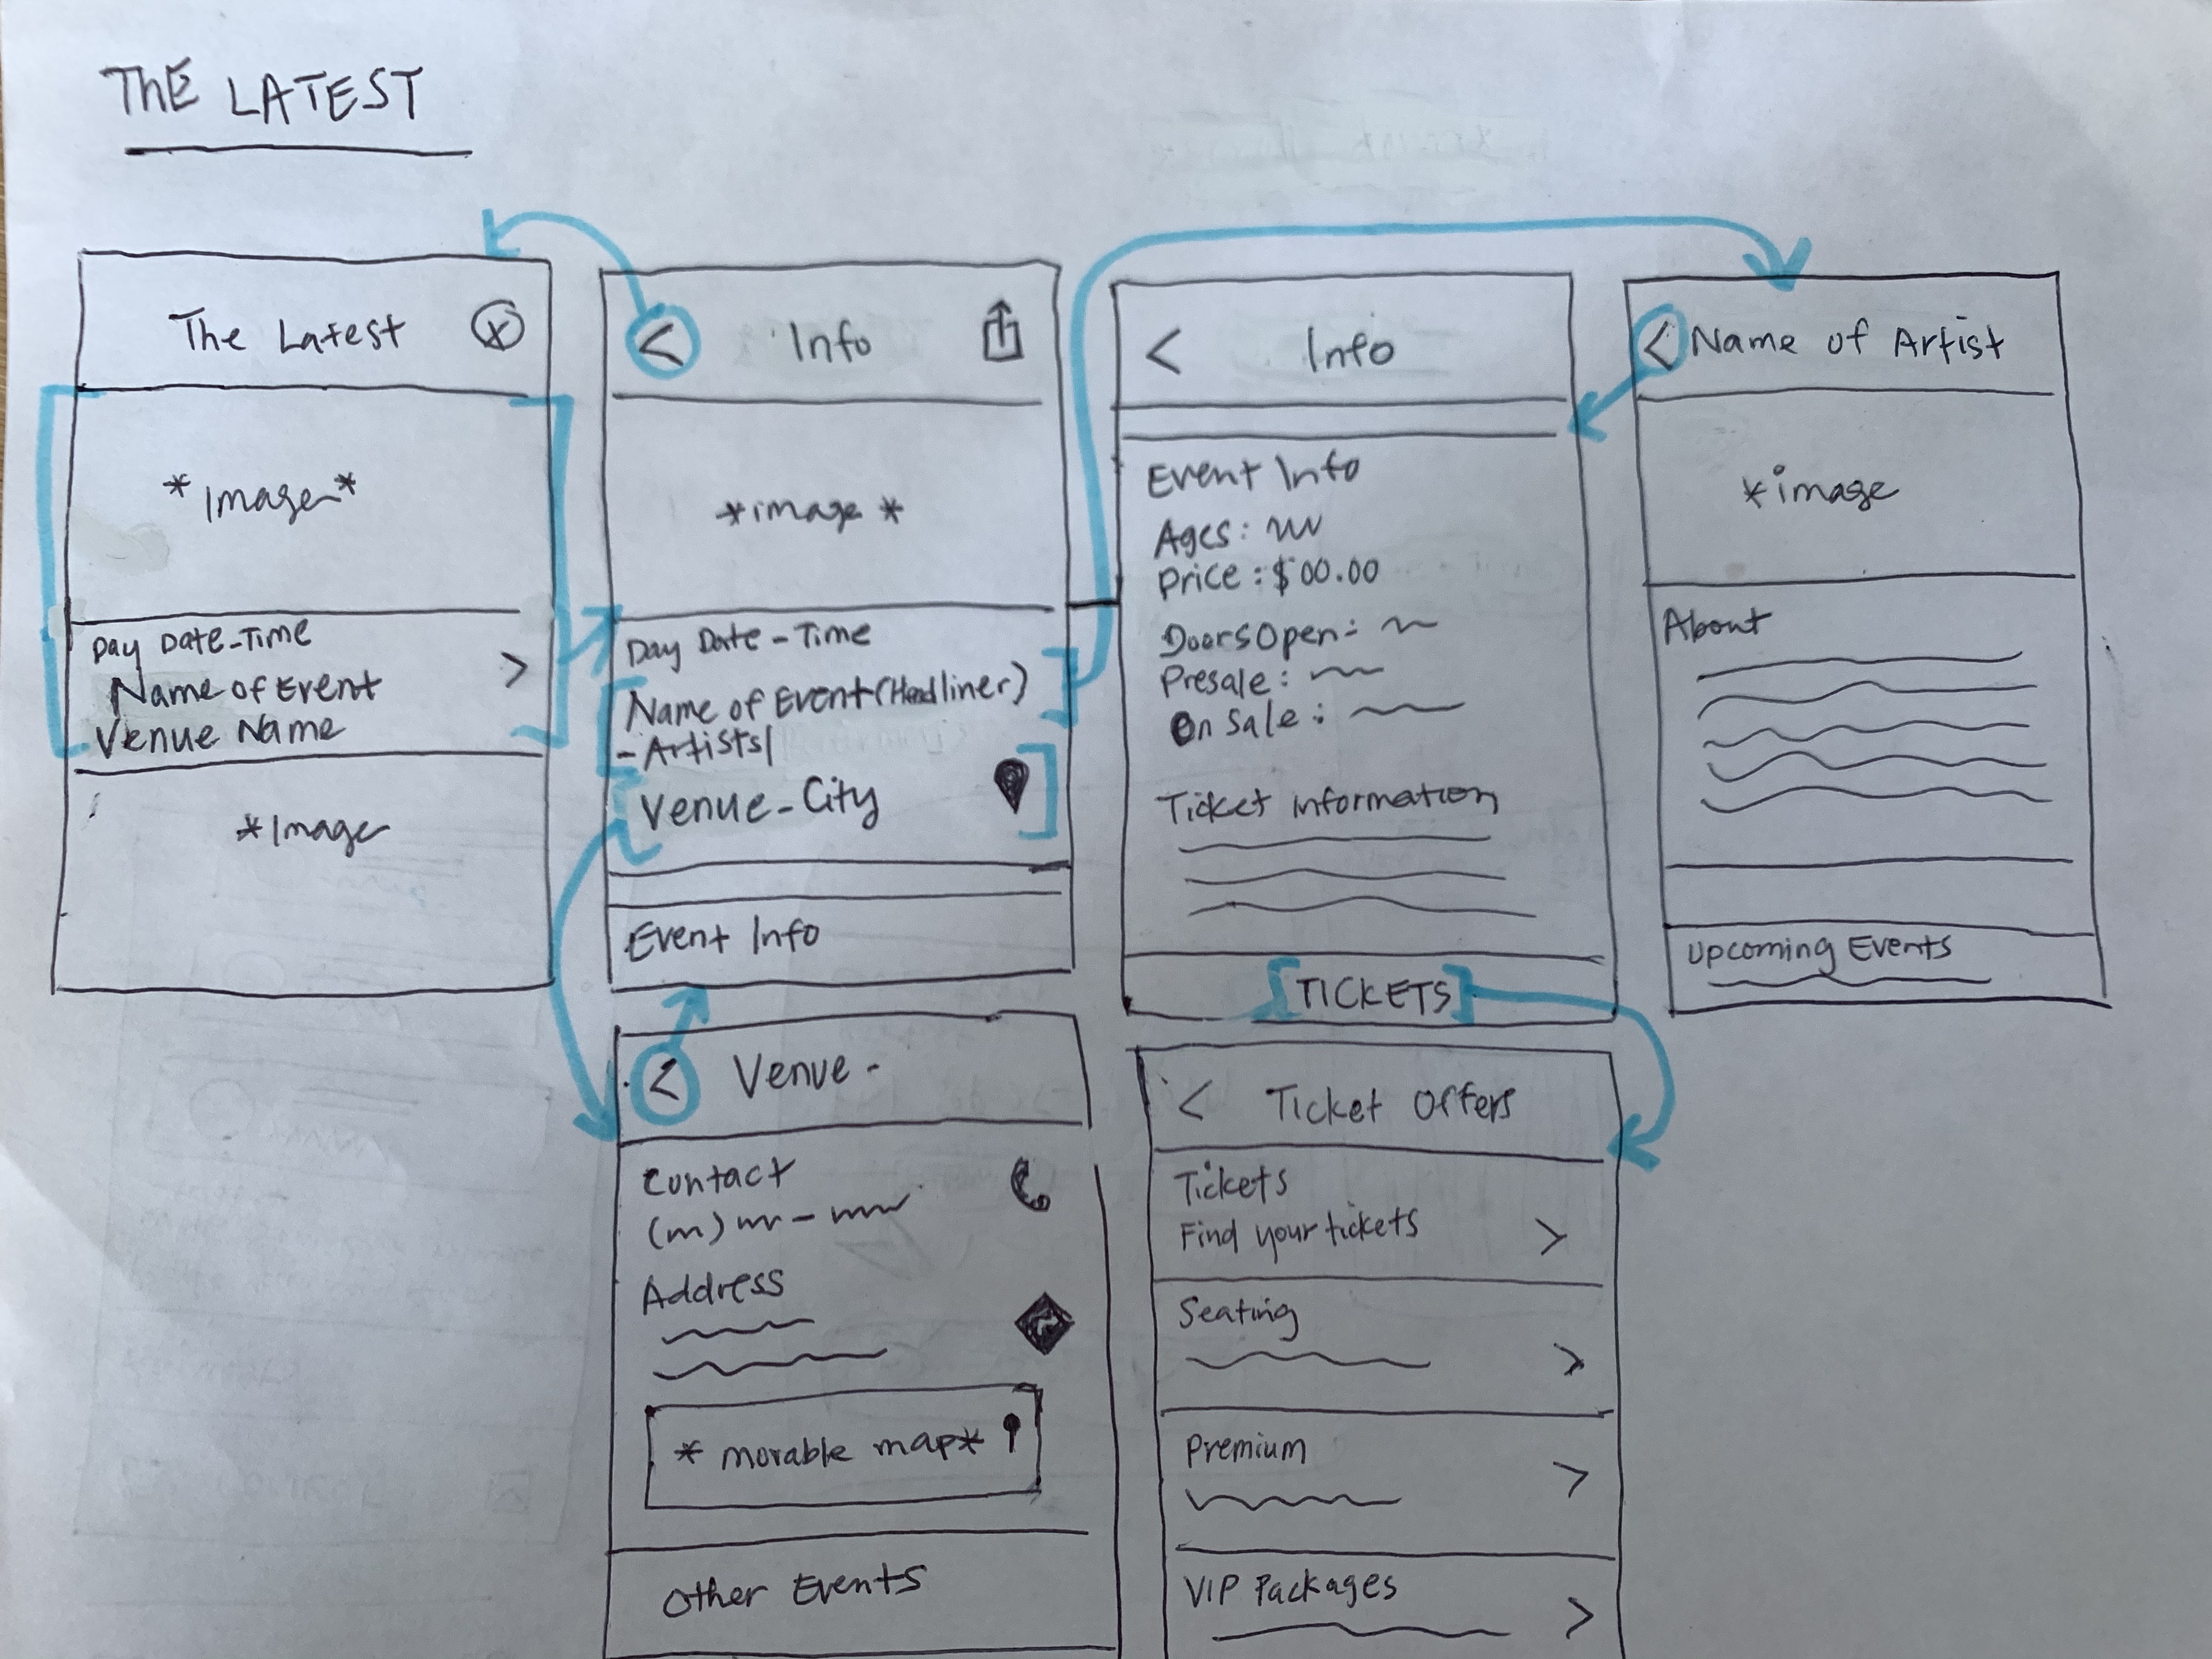 THE LATEST
The Latest
*Image*
Day Date-Time
Name of Event
Venue Name
*Image
< Info
*image*
Day Date-Time
Name of Event (Headliner)
-Artists
Venue-City
Event Info
< Info
Event Info
Ages:
Price: $00.00
Doors Open:
Presale:
On Sale:
Ticket information
TICKETS
< Name of Artist
*image
About
Upcoming Events
< Venue -
Contact
Address
* movable map*
Other Events
< Ticket Offers
Tickets
Find your tickets >
Seating
>
Premium
>
VIP Packages
>